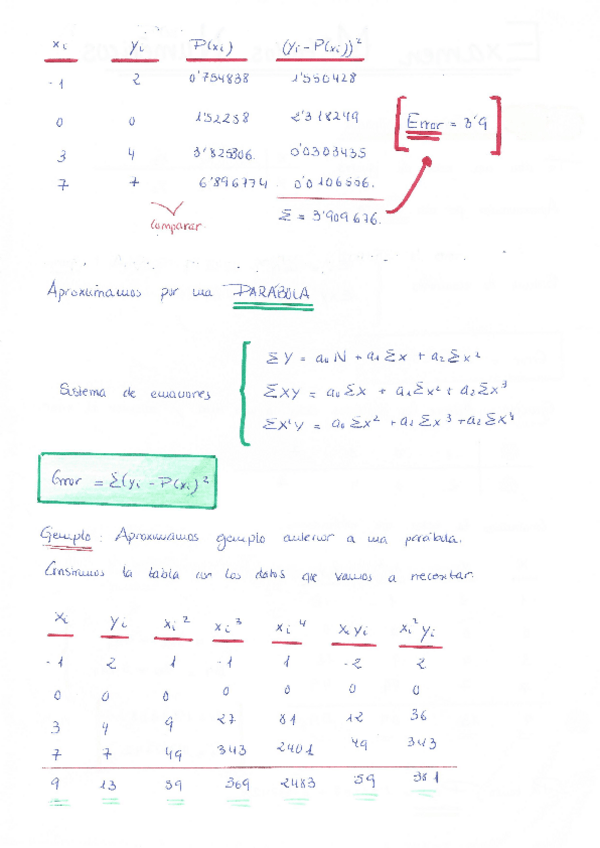 xi yi P(xi) (yi - P(xi))²
-1 2 0'754838 1'550428
0 0 1'52258 2'318249
3 4 3'825806. 0'0303435
7 7 6'896774 0'0106506.
Error = 3'9
Σ = 3'909676.
Comparar.
Aproximamos por una PARÁBOLA
ΣY = a₀N + a₁Σx + a₂Σx²
Sistema de ecuaciones
ΣXY = a₀Σx + a₁Σx² + a₂Σx³
ΣX²Y = a₀Σx² + a₁Σx³ + a₂Σx⁴
Error = Σ(yi - P(xi)²
Ejemplo: Aproximamos ejemplo anterior a una parábola.
Construimos la tabla con los datos que vamos a necesitar.
xi yi xi² xi³ xi⁴ xiyi xi²yi
-1 2 1 -1 1 -2 2
0 0 0 0 0 0 0
3 4 9 27 81 12 36
7 7 49 343 2401 49 343
9 13 59 369 2483 59 381